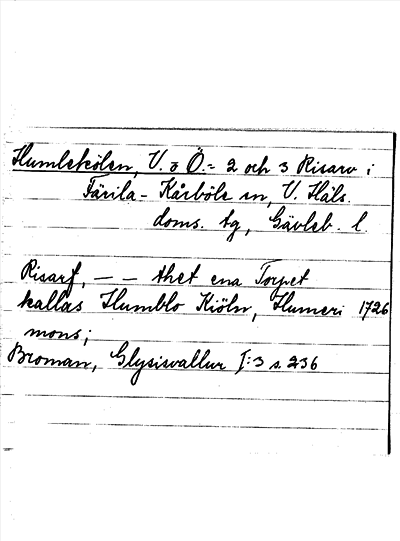 Humlekölen, V. o Ö. = 2 och 3 Risarv i
Färila - Kårböle sn, V. Häls.
doms. tg, Gävleb. l.
Risarf, — — thet ena Torpet
kallas Humblo Kiöln, Humeri 1726
mons;
Broman, Glysisvallur I:3 s. 236